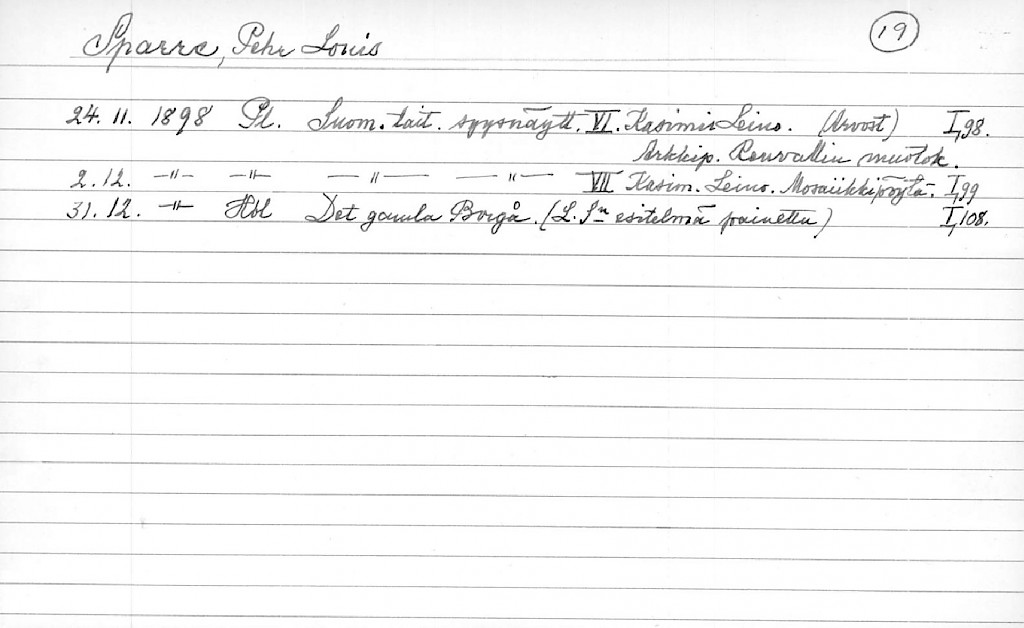 Sparre, Pehr Louis 19
24. 11. 1898 Pl. Suom. tait. syysnäytt. VI. Kasimir Leino. (Arvost) I,98.
Arkkip. Renvallin muotok.
2. 12. -"- -"- -"- -"- VII Kasim. Leino. Mosaiikkipöytä. I,99
31. 12. -"- Hbl Det gamla Borgå. (L. S:n esitelmä painettu) I,108.